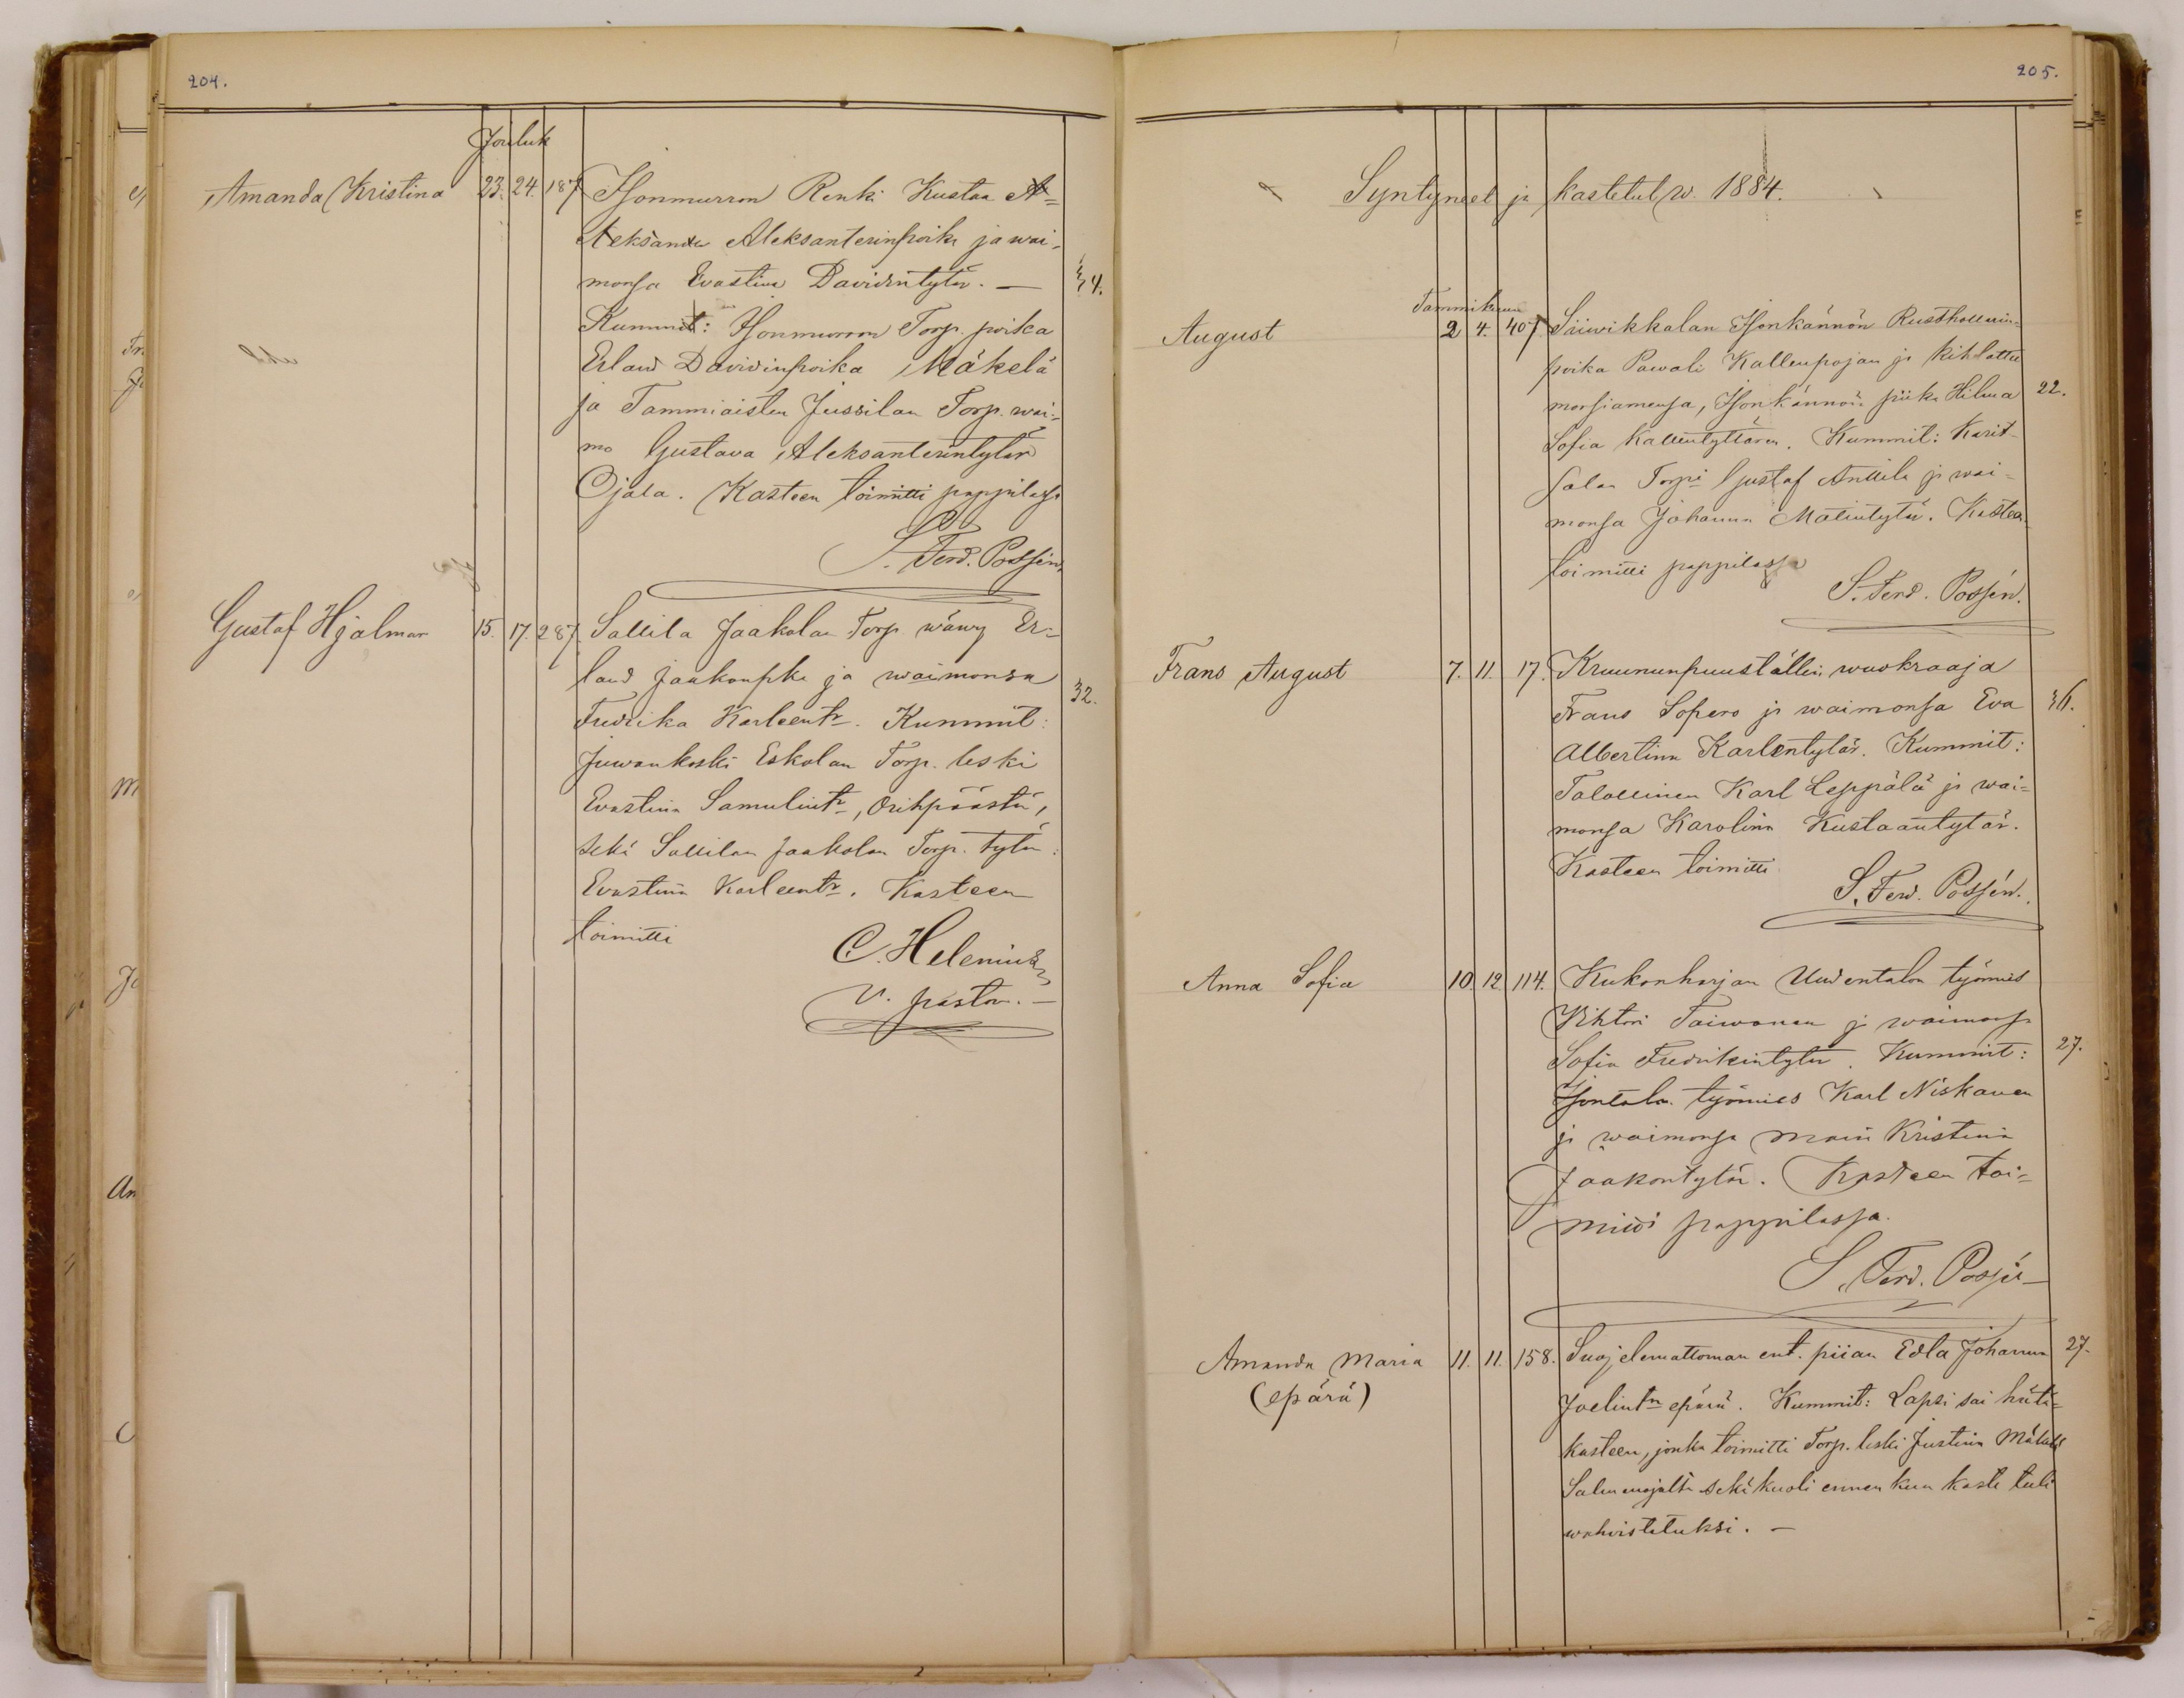 204.
Jouluk
Amanda Kristina 23. 24. 187 Isonmurron Renki Kustaa A=
Aleksander Aleksanterinpoika ja wai-
monsa Evastina Davidintytär. — 34.
Kummit: Isonmurron Torp. poika
Erland Davidinpoika Mäkelä
ja Tammiaisten Jussilan Torp. wai-
mo Gustava Aleksanterintytär
Ojala. Kasteen toimitti pappilassa
S. Ferd. Possén.
Gustaf Hjalmar 15. 17. 287. Sallila Jaakolan Torp wäwy Er=
land Jaakonpka ja waimonsa 32.
Fredrika Karleentr. Kummit:
Juwankoski Eskolan Torp. leski
Evastiina Samulintr, Orihpäästä,
sekä Sallilan Jaakolan Torp. tytär:
Evastiina Karleentr. Kasteen
toimitti
C. Helenius
V. pastori. —
205.
Syntyneet ja kastetut w. 1884.
Tammikuun
August 2 4. 407. Isonkännön Rusthollarin-
poika Pawali Kallenpojan ja kihlattu
morsiamensa, Isonkännön piika Hilma 22.
Sofia Kallentyttären. Kummit: Karit-
salan Torpi Gustaf Anttila ja wai-
monsa Johanna Matintytär. Kasteen
toimitti pappilassa
S. Ferd. Possén.
Frans August 7. 11. 17. Kruununpuustállin wuokraaja
Frans Sopero ja waimonsa Eva 36.
Albertina Karlentytär. Kummit:
Talollinen Karl Leppälä ja wai-
monsa Karolina Kustaantytär.
Kasteen toimitti
S. Ferd. Possén.
Anna Sofia 10. 12. 114. Kukonharjan Uudentalon työmies
Viktor Taiwonen ja waimonsa
Sofia Fredrikintytär. Kummit: 27.
Isontalon työmies Karl Niskanen
ja waimonsa Maria Kristiina
Jaakontytär. Kasteen toi=
mitti pappilassa.
S. Ferd. Possén
Amanda Maria 11. 11. 158. Suojelemattoman ent. piian Edla Johanna 27.
(epärä) Joelintn epärä. Kummit: Lapsi sai hätä-
kasteen, jonka toimitti Torp. leski Justiina Mäkelä
Salmenojalta sekä kuoli ennen kun kaste tuli
wahvistetuksi. —